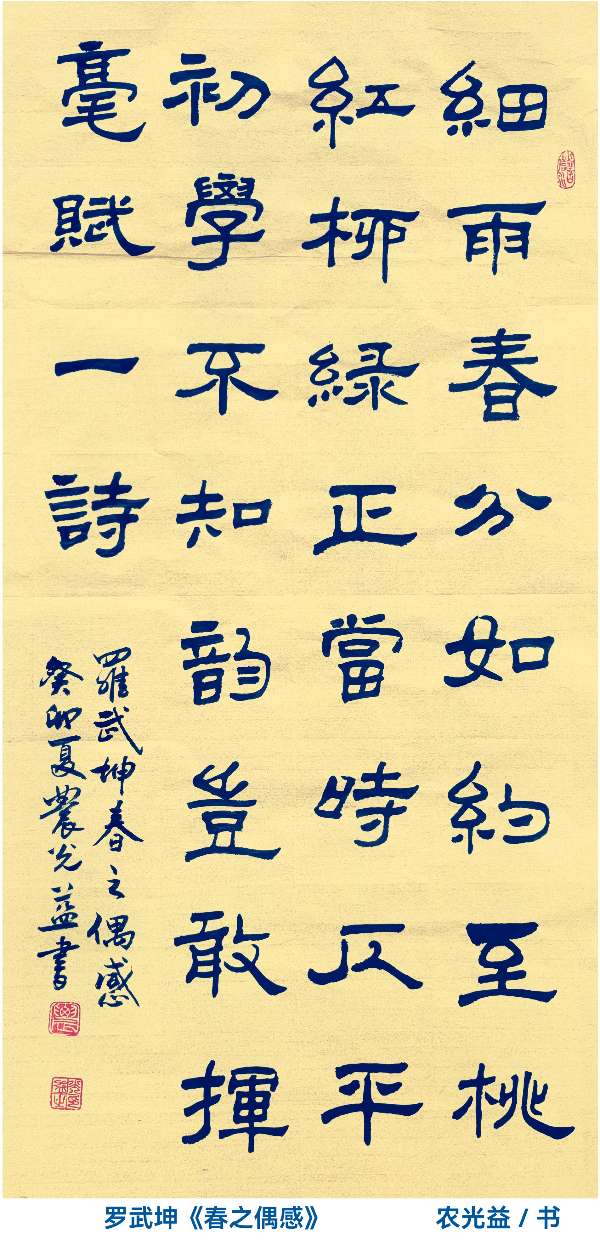 細雨春分如約至桃
紅柳綠正當時仄平
初學不知韵豈敢揮
毫賦一詩
羅武坤春之偶感
癸卯夏農光益書
罗武坤《春之偶感》
农光益 / 书